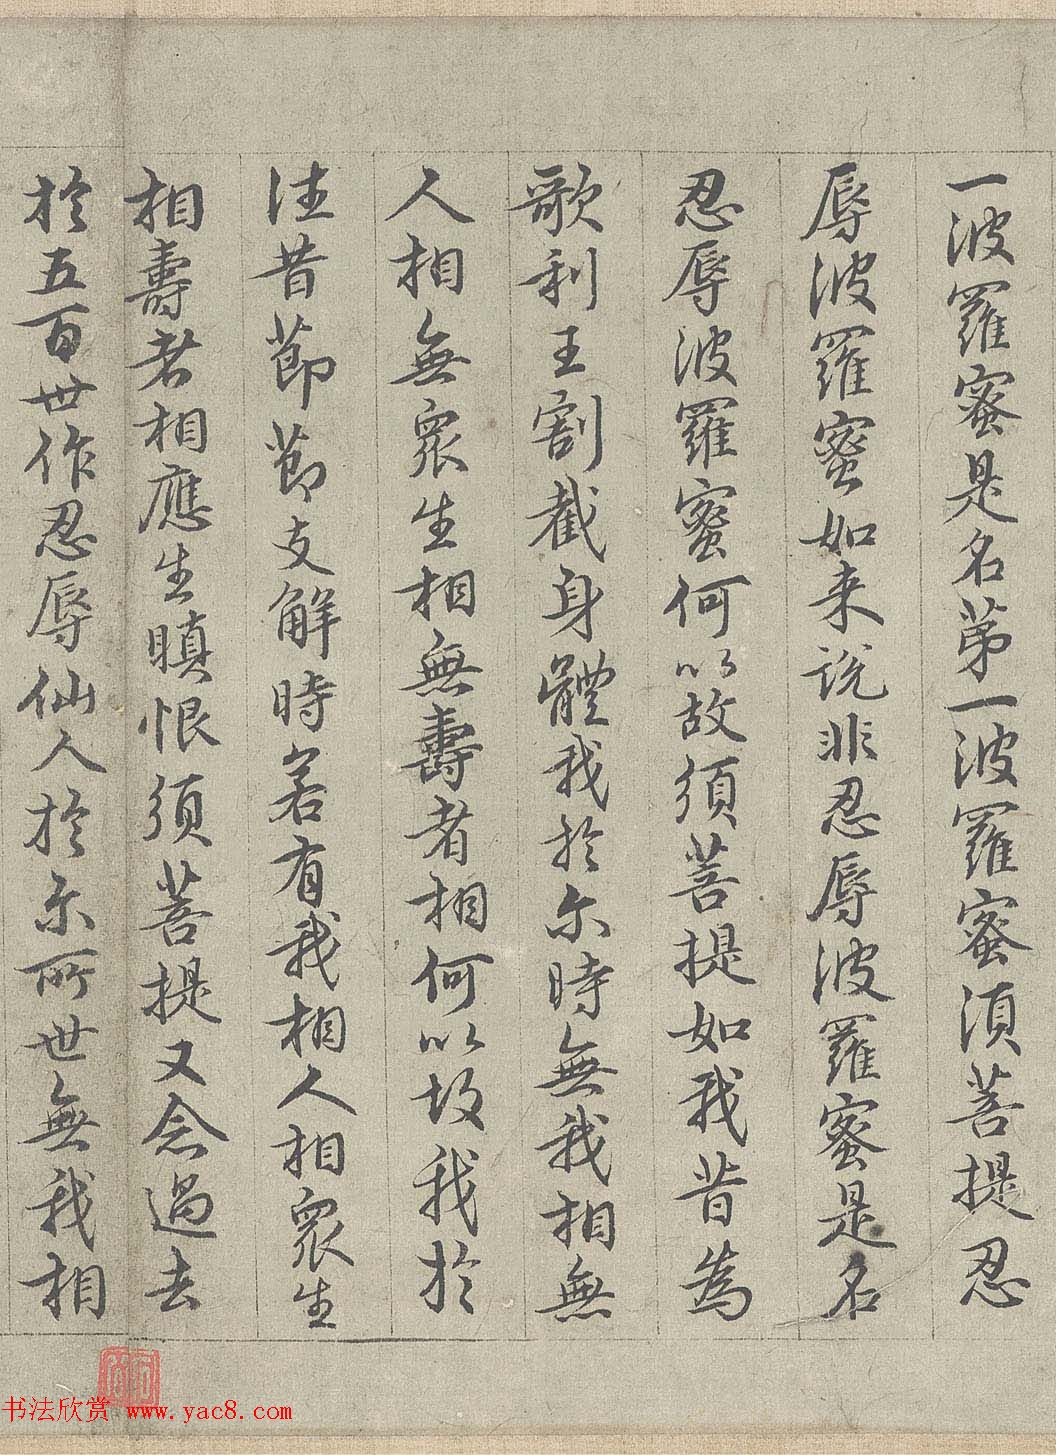 一波羅蜜是名苐一波羅蜜須菩提忍
辱波羅蜜如来說非忍辱波羅蜜是名
忍辱波羅蜜何以故須菩提如我昔為
歌利王割截身體我於尒時無我相無
人相無眾生相無壽者相何以故我於
往昔節節支解時若有我相人相眾生
相壽者相應生瞋恨須菩提又念過去
於五百世作忍辱仙人於尒所世無我相
书法欣赏 www.yac8.com